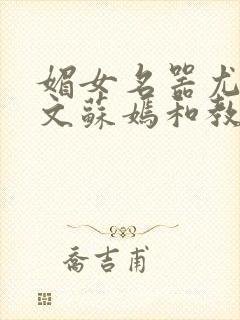 媚女名器尤
文蘇媽和教
喬吉甫